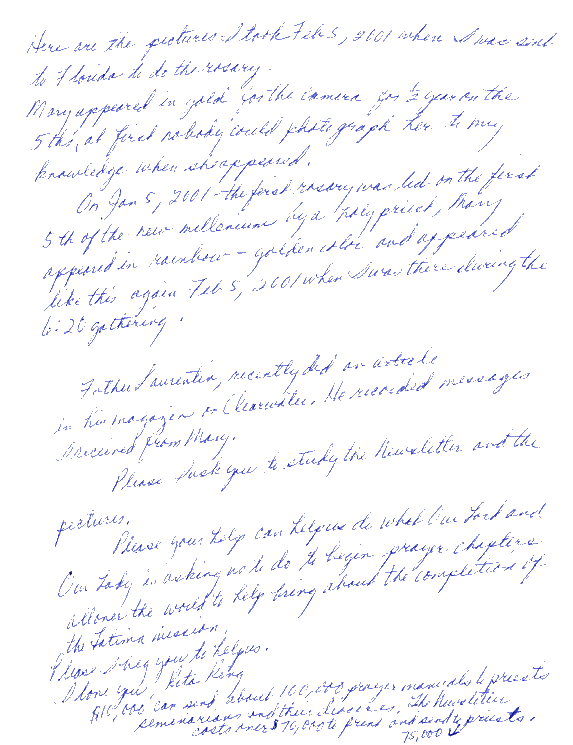 Here are the pictures I took Feb 5, 2001 when I was sent
to Florida to do the rosary.
Mary appeared in gold for the camera for ½ year on the
5ths, at first nobody could photograph her to my
knowledge when she appeared.
On Jan 5, 2001 - the first rosary was led on the first
5th of the new millenium by a holy priest, Mary
appeared in rainbow - golden color and appeared
like this again Feb 5, 2001 when I was there during the
6:20 gathering.
Father Laurentin, recently did an article
in his magazine on Clearwater. He recorded messages
I received from Mary.
Please I ask you to study the Newsletter and the
pictures.
Please your help can help us do what Our Lord and
Our Lady is asking us to do to begin prayer chapters
all over the world to help bring about the completion of
the Fatima mission.
Please I beg you to help us.
I love you, Rita Ring
$10,000 can send about 100,000 prayer manuals to priests
seminarians and their dioceses. The Newsletter
costs over $70,000 to print and send to priests.
75,000